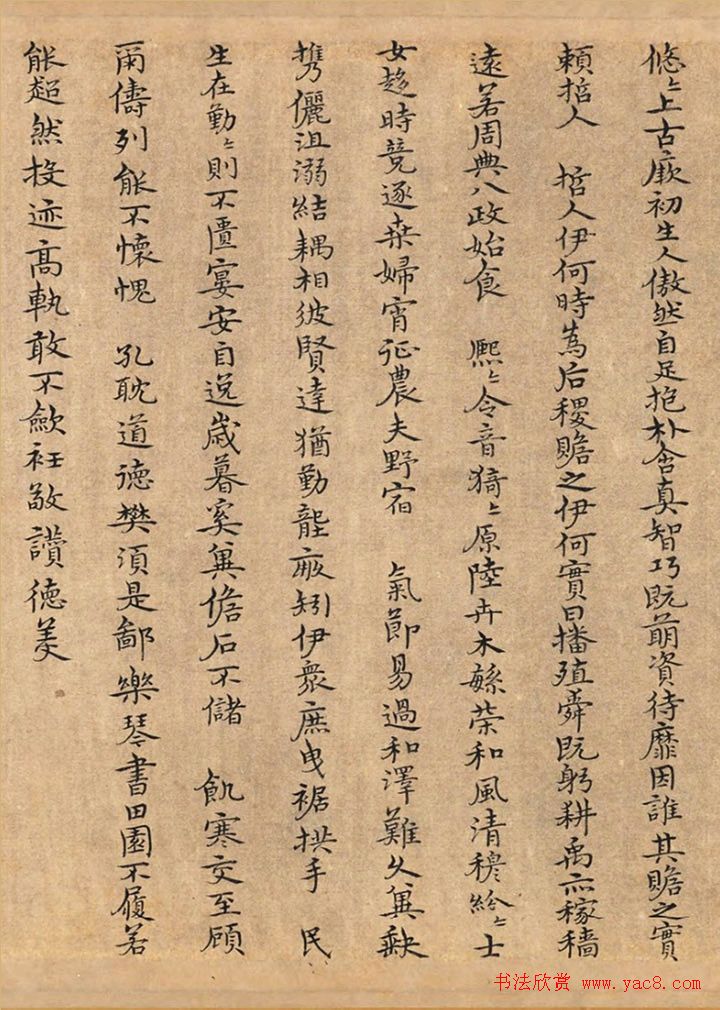 悠〻上古厥初生人傲然自足抱朴含真智巧既萌資待靡因誰其贍之實
頼哲人　哲人伊何時為后稷贍之伊何實曰播殖舜既躬耕禹亦稼穡
遠若周典八政始食　熙〻令音猗〻原陸卉木繁榮和風清穆紛〻士
女趍時競逐桒婦宵征農夫野宿　氣節易過和澤難久兾缺
携儷沮溺結耦相彼賢達猶勤壟畝矧伊衆庶曳裾拱手　民
生在勤〻則不匱宴安自逸歳暮奚兾儋石不儲　飢寒交至顧
爾儔列能不懷愧　孔耽道德樊湏是鄙樂琴書田園不履若
能超然投迹高軌敢不歛衽敬讃德美
书法欣赏 www.yac8.com